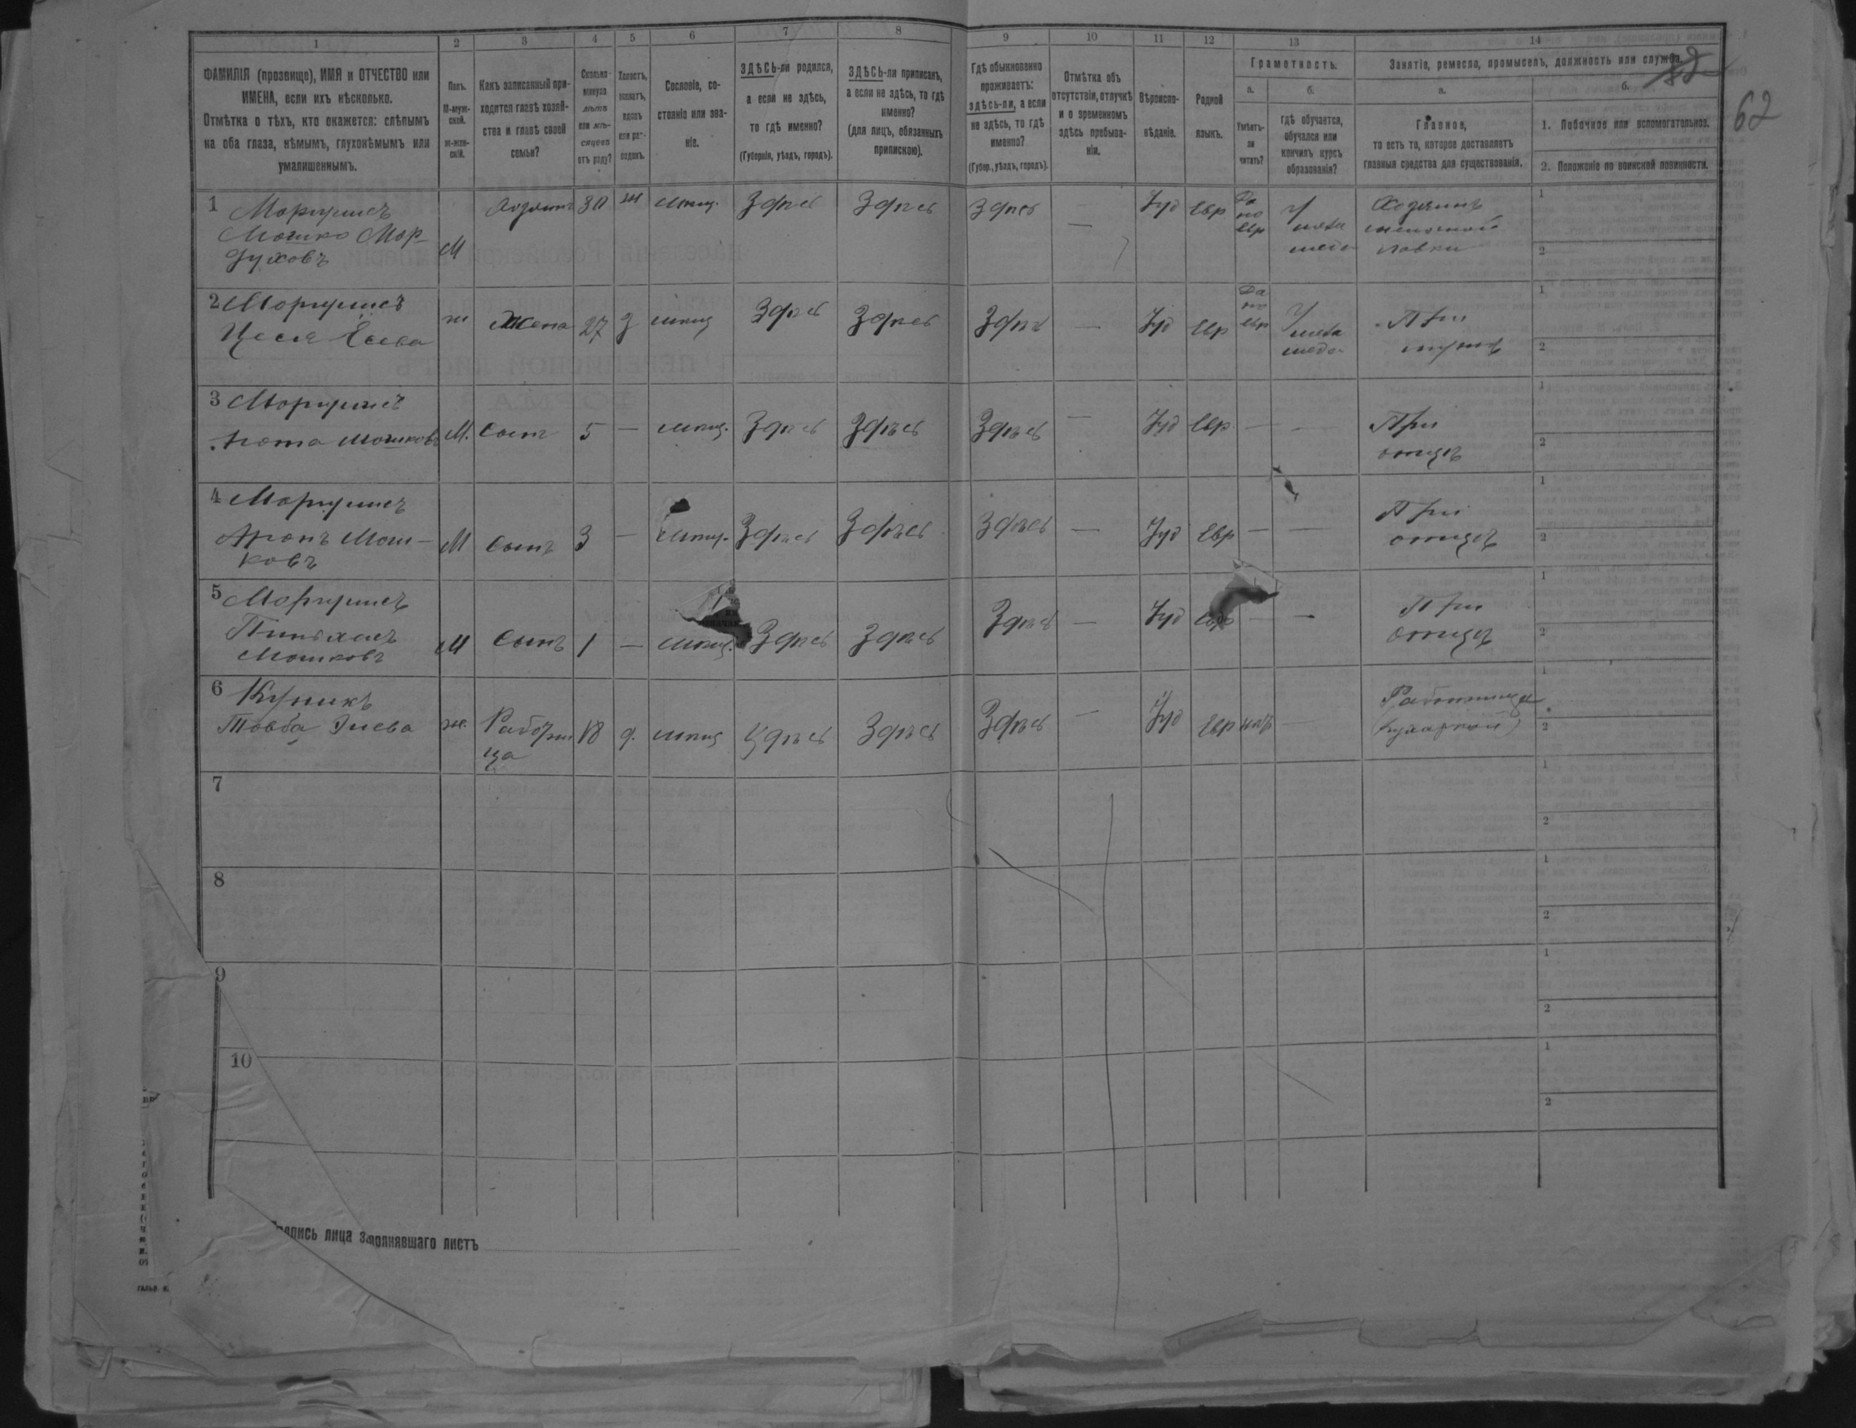 1 2 3 4 5 6 7 8 9 10 11 12 13 14
ФАМИЛІЯ (прозвище), ИМЯ и ОТЧЕСТВО или
ИМЕНА, если ихъ нѣсколько.
Отмѣтка о тѣхъ, кто окажется: слѣпымъ
на оба глаза, нѣмымъ, глухонѣмымъ или
умалишеннымъ.
Полъ.
М-муж-
ской.
ж-жен-
скій.
Какъ записанный при-
ходится главѣ хозяй-
ства и главѣ своей
семьи?
Сколько
минуло
лѣтъ
или мѣ-
сяцевъ
отъ роду?
Холостъ,
женатъ,
вдовъ
или раз-
веденъ.
Сословіе, со-
стояніе или зва-
ніе.
ЗДѢСЬ-ли родился,
а если не здѣсь,
то гдѣ именно?
(Губернія, уѣздъ, городъ).
ЗДѢСЬ-ли приписанъ,
а если не здѣсь, то гдѣ
именно?
(для лицъ, обязанныхъ
припискою).
Гдѣ обыкновенно
проживаетъ:
здѣсь-ли, а если
не здѣсь, то гдѣ
именно?
(Губер., уѣздъ, городъ).
Отмѣтка объ
отсутствіи, отлучкѣ
и о временномъ
здѣсь пребыва-
ніи.
Вѣроиспо-
вѣданіе.
Родной
языкъ.
Грамотность.
а.
Умѣетъ-
ли
читать?
б.
гдѣ обучается,
обучался или
кончилъ курсъ
образованія?
Занятіе, ремесло, промыселъ, должность или служба.
а.
Главное,
то есть то, которое доставляетъ
главныя средства для существованія.
б.
1. Побочное или вспомогательное.
2. Положеніе по воинской повинности.
62
1 Моргулисъ
Мошко Мор-
духовъ
М Хозяинъ 30 ж мѣщ. Здѣсь Здѣсь Здѣсь — Іуд Евр
Да
по
евр
У
мела
меда
Хозяинъ
лавки
1
2
2 Моргулисъ
ж Жена 27 з мѣщ Здѣсь Здѣсь Здѣсь — Іуд Евр
Да
по
евр
У
мела
меда
При
мужѣ
1
2
3 Моргулисъ
Мошковъ М. Сынъ 5 — мѣщ. Здѣсь Здѣсь Здѣсь — Іуд Евр — —
При
отцѣ
1
2
4 Моргулисъ
Аронъ Мош-
ковъ
М Сынъ 3 — мѣщ. Здѣсь Здѣсь Здѣсь — Іуд Евр — —
При
отцѣ
1
2
5 Моргулисъ
Пинхасъ
Мошковъ
М Сынъ 1 — мѣщ. Здѣсь Здѣсь Здѣсь — Іуд Евр — —
При
отцѣ
1
2
6 Купикъ
Товба
ж. Работни
ца
18 д. мѣщ Здѣсь Здѣсь Здѣсь — Іуд Евр нѣтъ —
Работница
(кухаркой)
1
2
7
1
2
8
1
2
9
1
2
10
1
2
подпись лица заполнявшаго листъ